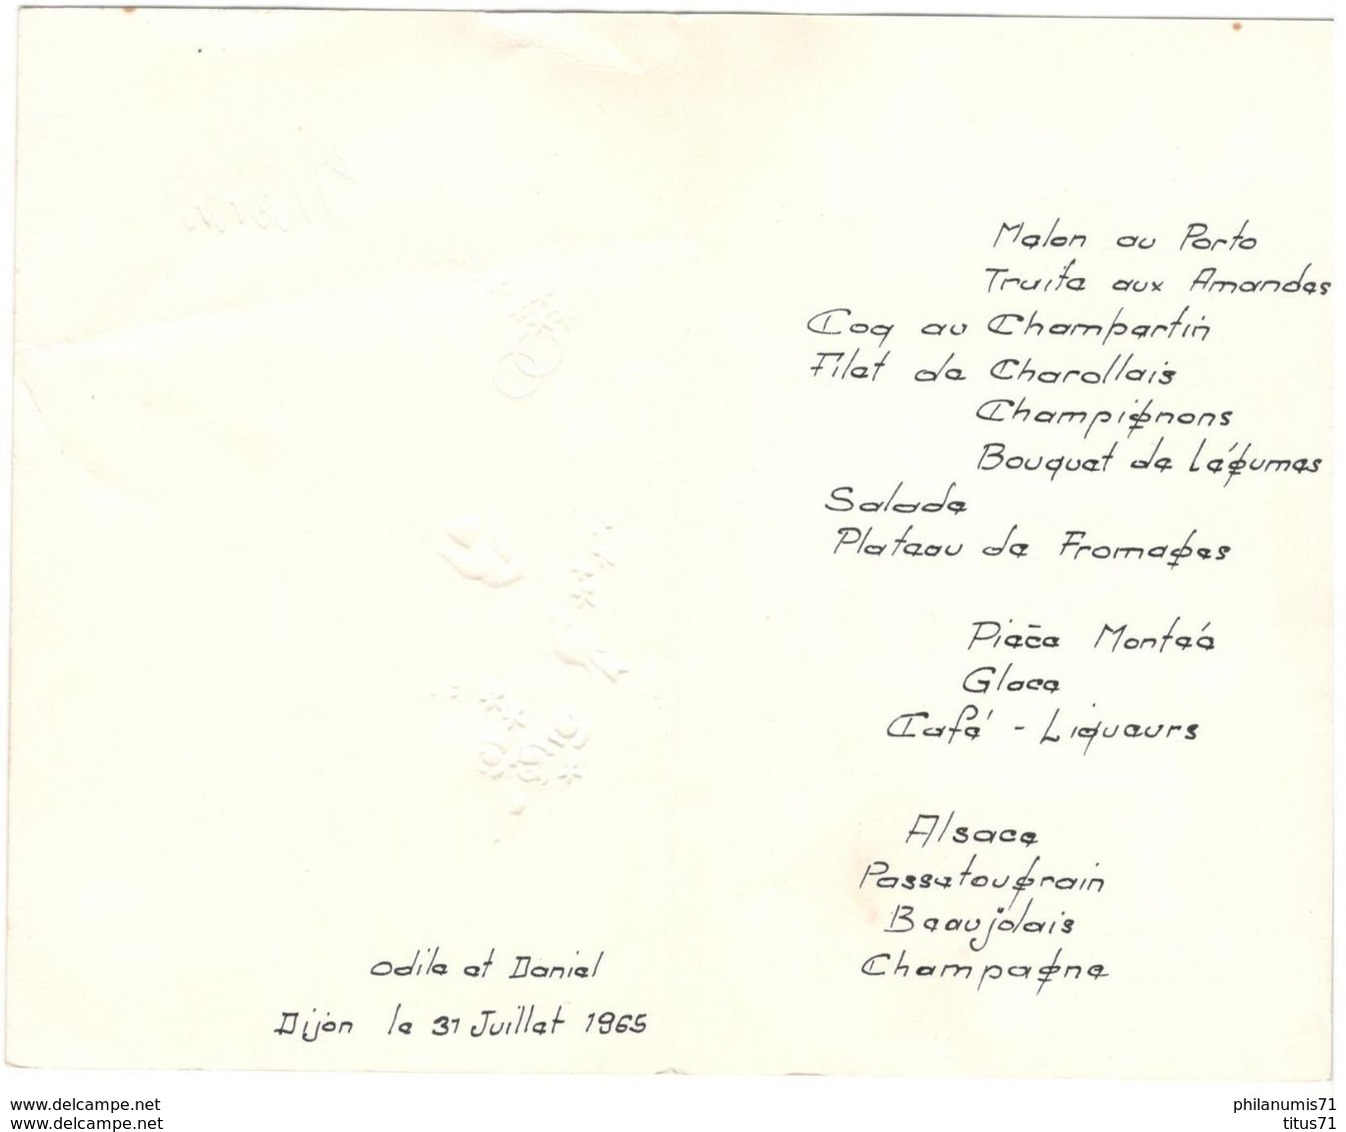 Odile et Daniel
Dijon le 31 Juillet 1965
Melon au Porto
Truite aux Amandes
Coq au Chambertin
Filet de Charollais
Champignons
Bouquet de légumes
Salade
Plateau de Fromages
Pièce Montée
Glace
Café - Liqueurs
Alsace
Passetougrain
Beaujolais
Champagne
www.delcampe.net
www.delcampe.net
philanumis71
titus71